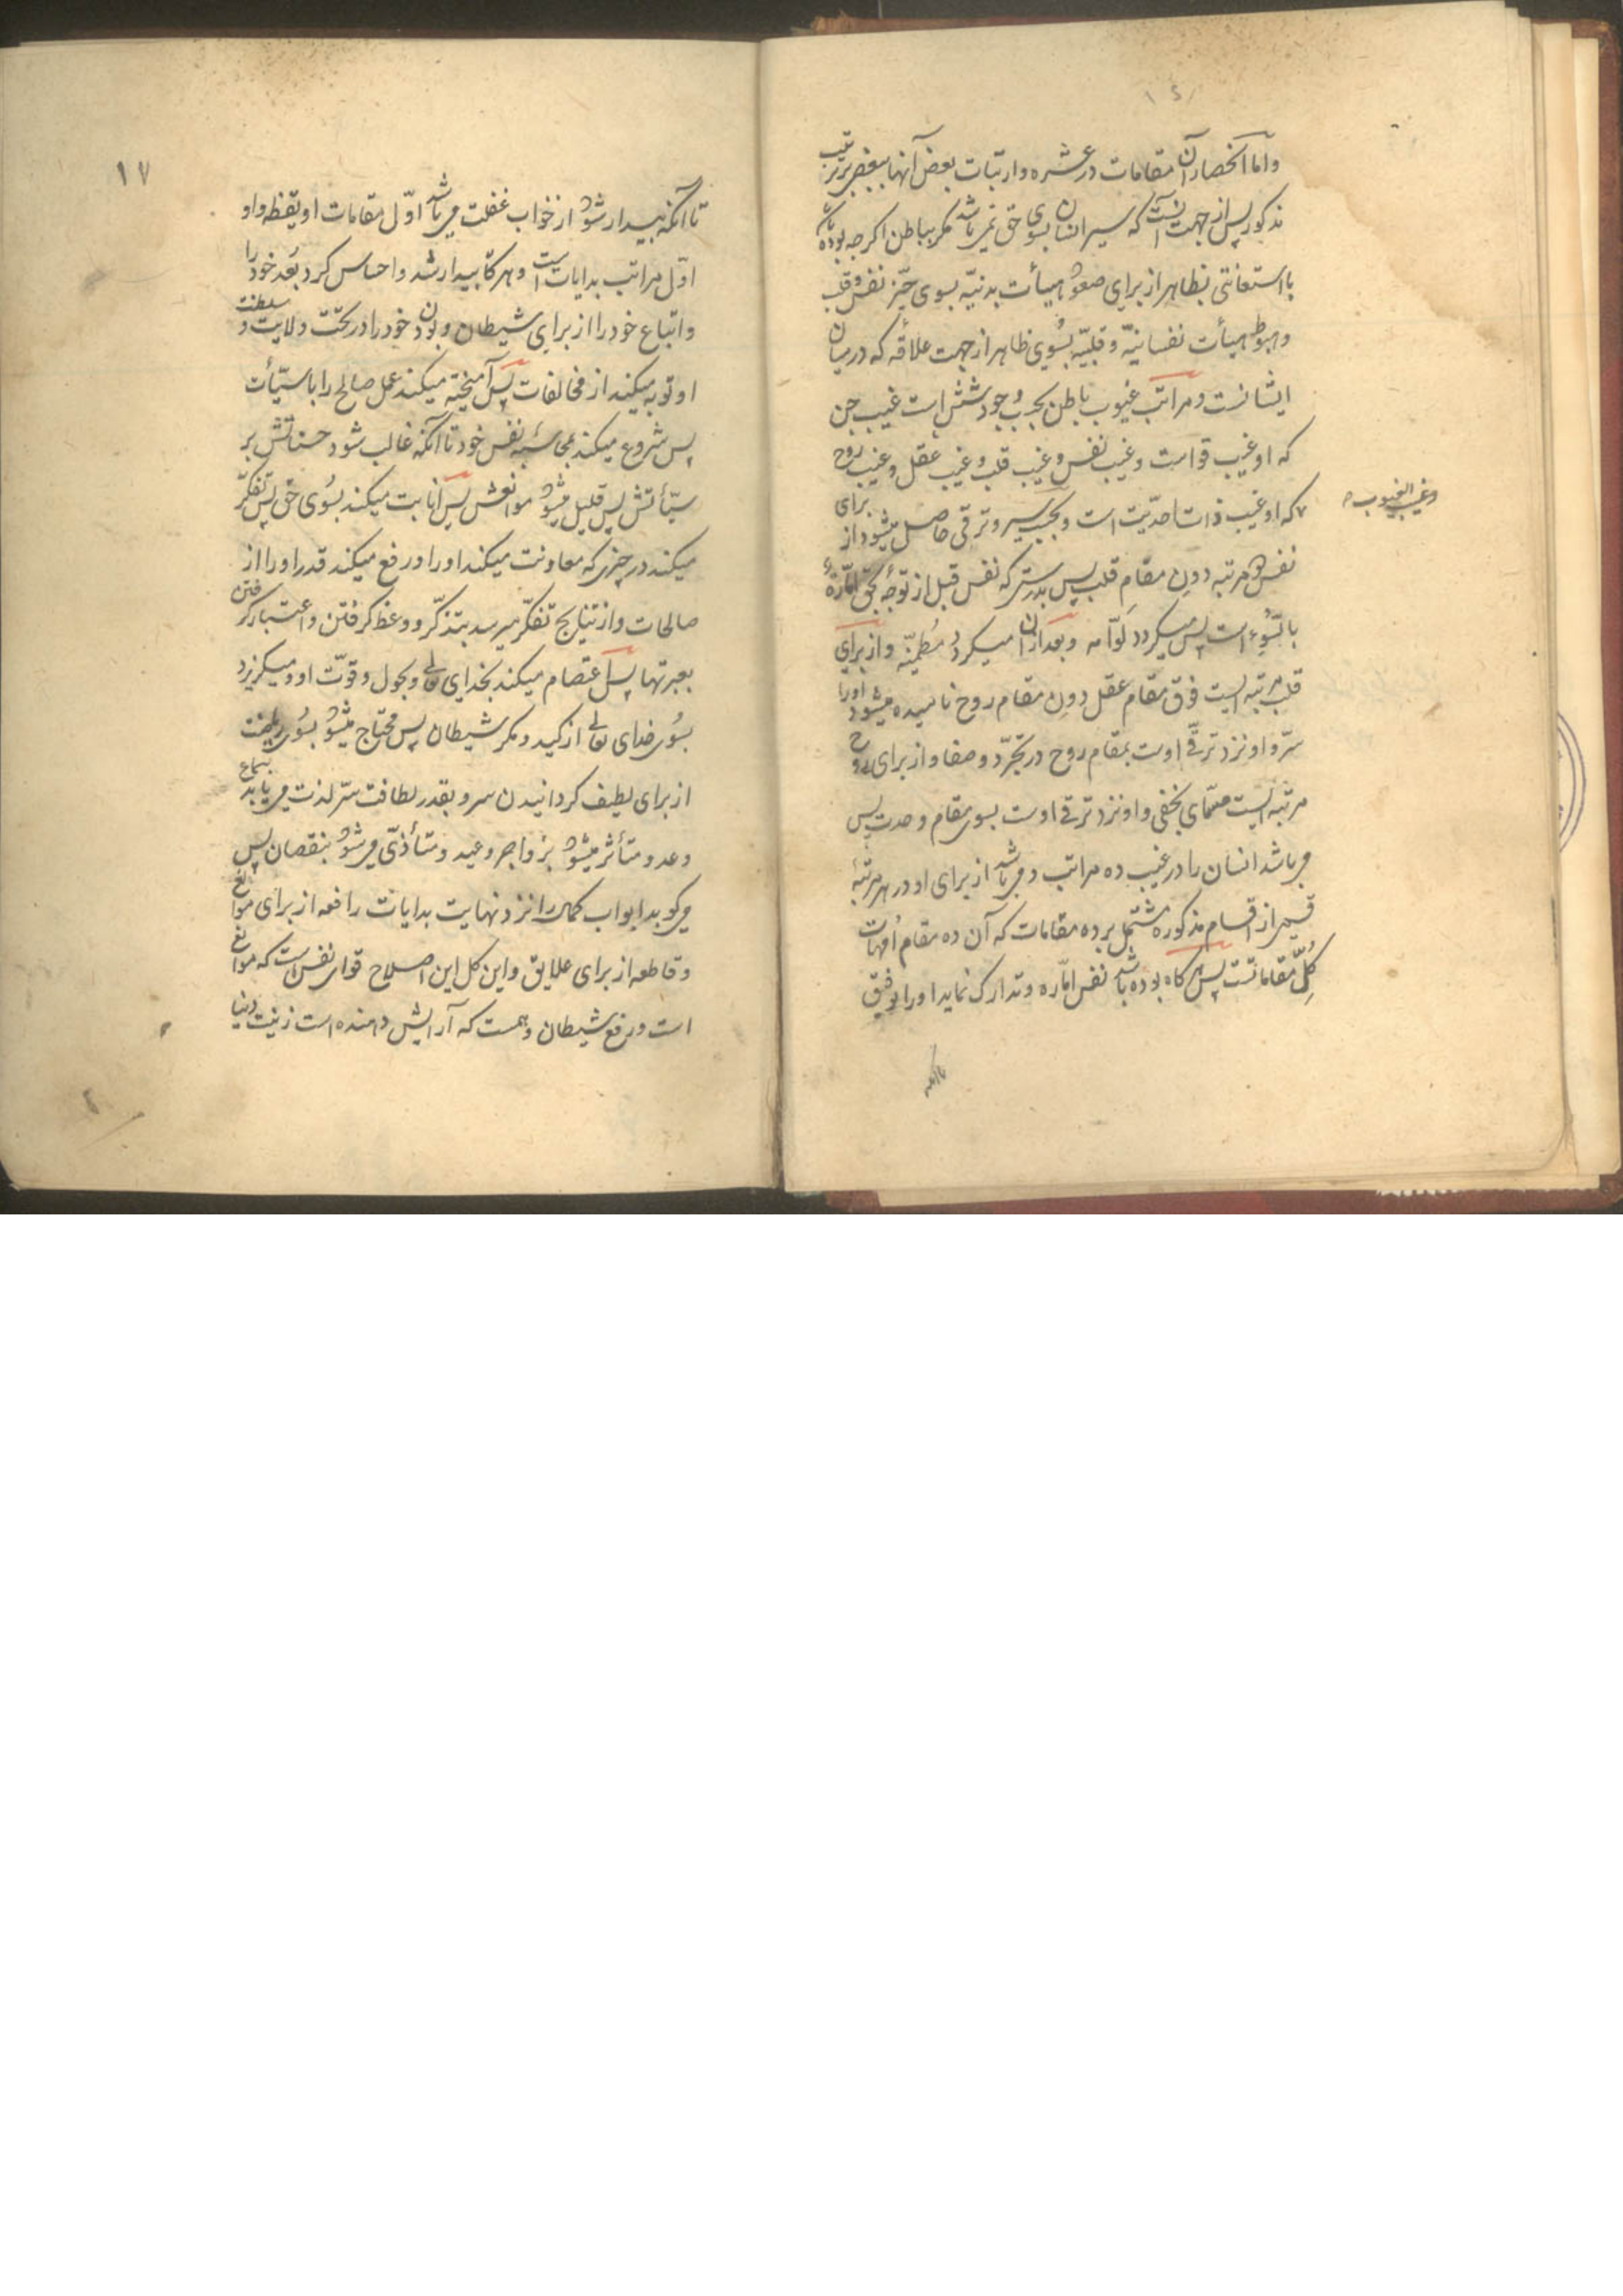 واما انحصار آن مقامات در عشره وارتبات بعض آنها ببعض بر ترتیب
مذکور پس از جهت آنست که سیر انسان بسوی حق نمی باشد مکر بباطن اکرچه بوده باشد
با استعانتی بظاهر از برای صعود هیأت بدنیّه بسوی حیّز نفس و قلب
وهبوط هیأت نفسانیّه وقلبیّه بسُوی ظاهر از جهت علاقه که در میان
ایشانست ومراتب غیوب باطن بحسب وجود شش است غیب جن
که او غیب قواست وغیب نفس وغیب قلب وغیب عقل وغیب روح
وغیب الغیوب
که او غیب ذات احدیّت است وبحسب سیر وترقی حاصل میشود از برای
نفس دو مرتبه دون مقام قلب پس بدرستی که نفس قبل از توجّه بحق امّارهٔ
بالسّوء است پس میکردد لوّامه وبعد از آن میکردد مُطمئنّه واز برای
قلب مرتبه ایست فوق مقام عقل دون مقام روح نامیده میشود اورا
سرّ واو نزد ترقّی اوست بمقام روح در تجرّد وصفا واز برای روح
مرتبه ایست مسمّای بخفی واو نزد ترقی اوست بسوی مقام وحدت پس
می باشد انسان را در غیب ده مراتب ومی باشد از برای او در هر مرتبهٔ
قسمی از اقسام مذکوره مشتمل بر ده مقامات که آن ده مقام اُمّهات
کُلّ مقاماتست پس هرکاه بوده باشد نفس امّاره وتدارک نماید اورا توفیق
تا آنکه
١٧
تا آنکه بیدار شود از خواب غفلت می باشد اوّل مقامات او یقظه واو
اوّل مراتب بدایات است وهرکاه بیدار شد واحساس کرد بُعد خود را
واتباع خود را از برای شیطان وبودن خود را در تحت ولایت و سلطنت
او توبه میکند از مخالفات پس آمیخته میکند عمل صالح را با سیّأت
پس شروع میکند بمحاسبهٔ نفس خود تا آنکه غالب شود حسناتش بر
سیّأتش پس قلیل میشود موانعش پس انابت میکند بسُوی حق پس تفکّر
میکند در چیزی که معاونت میکند اورا ورفع میکند قدر اورا از
صالحات واز نتایج تفکّر میرسد بتذکّر ووعظ کرفتن واعتبار کرفتن
بعبرتها پس اعتصام میکند بخدای تعالی وبحول وقوّت او ومیکریزد
بسُوی خدای تعالی از کید ومکر شیطان پس محتاج میشود بسُوی ریاضت
از برای لطیف کردانیدن سر وبقدر لطافت سرّ لذت می یابد بسماع
وعد ومتأثر میشود بزواجر وعید ومتأذّی می شود بنقصان پس
می کوبد ابواب کمال را نزد نهایت بدایات رافعه از برای موانع
وقاطعه از برای علایق واین کل این اصلاح قوای نفس است که موانع
است ورفع شیطان وهمست که آرایش دهنده است زینت دنیا